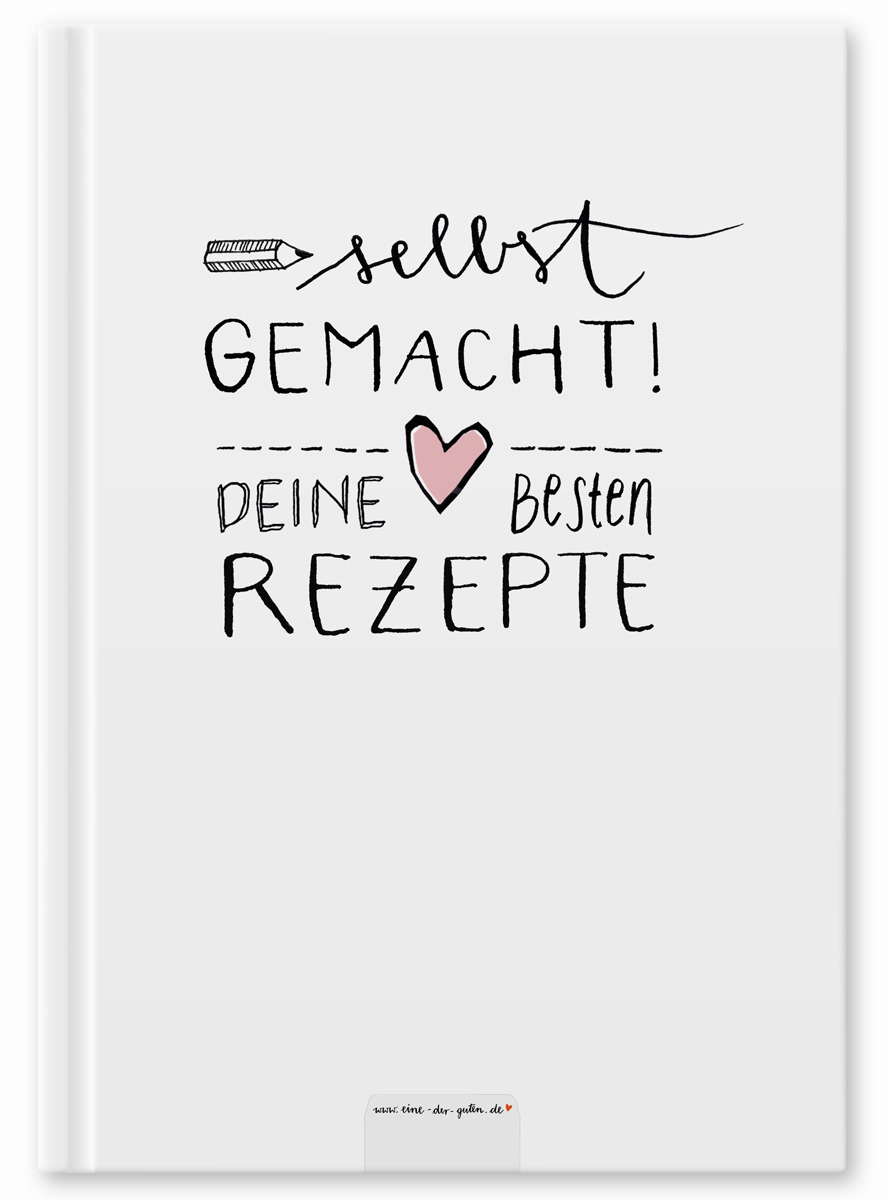 selbst
GEMACHT!
DEINE Besten
REZEPTE
www.eine-der-guten.de